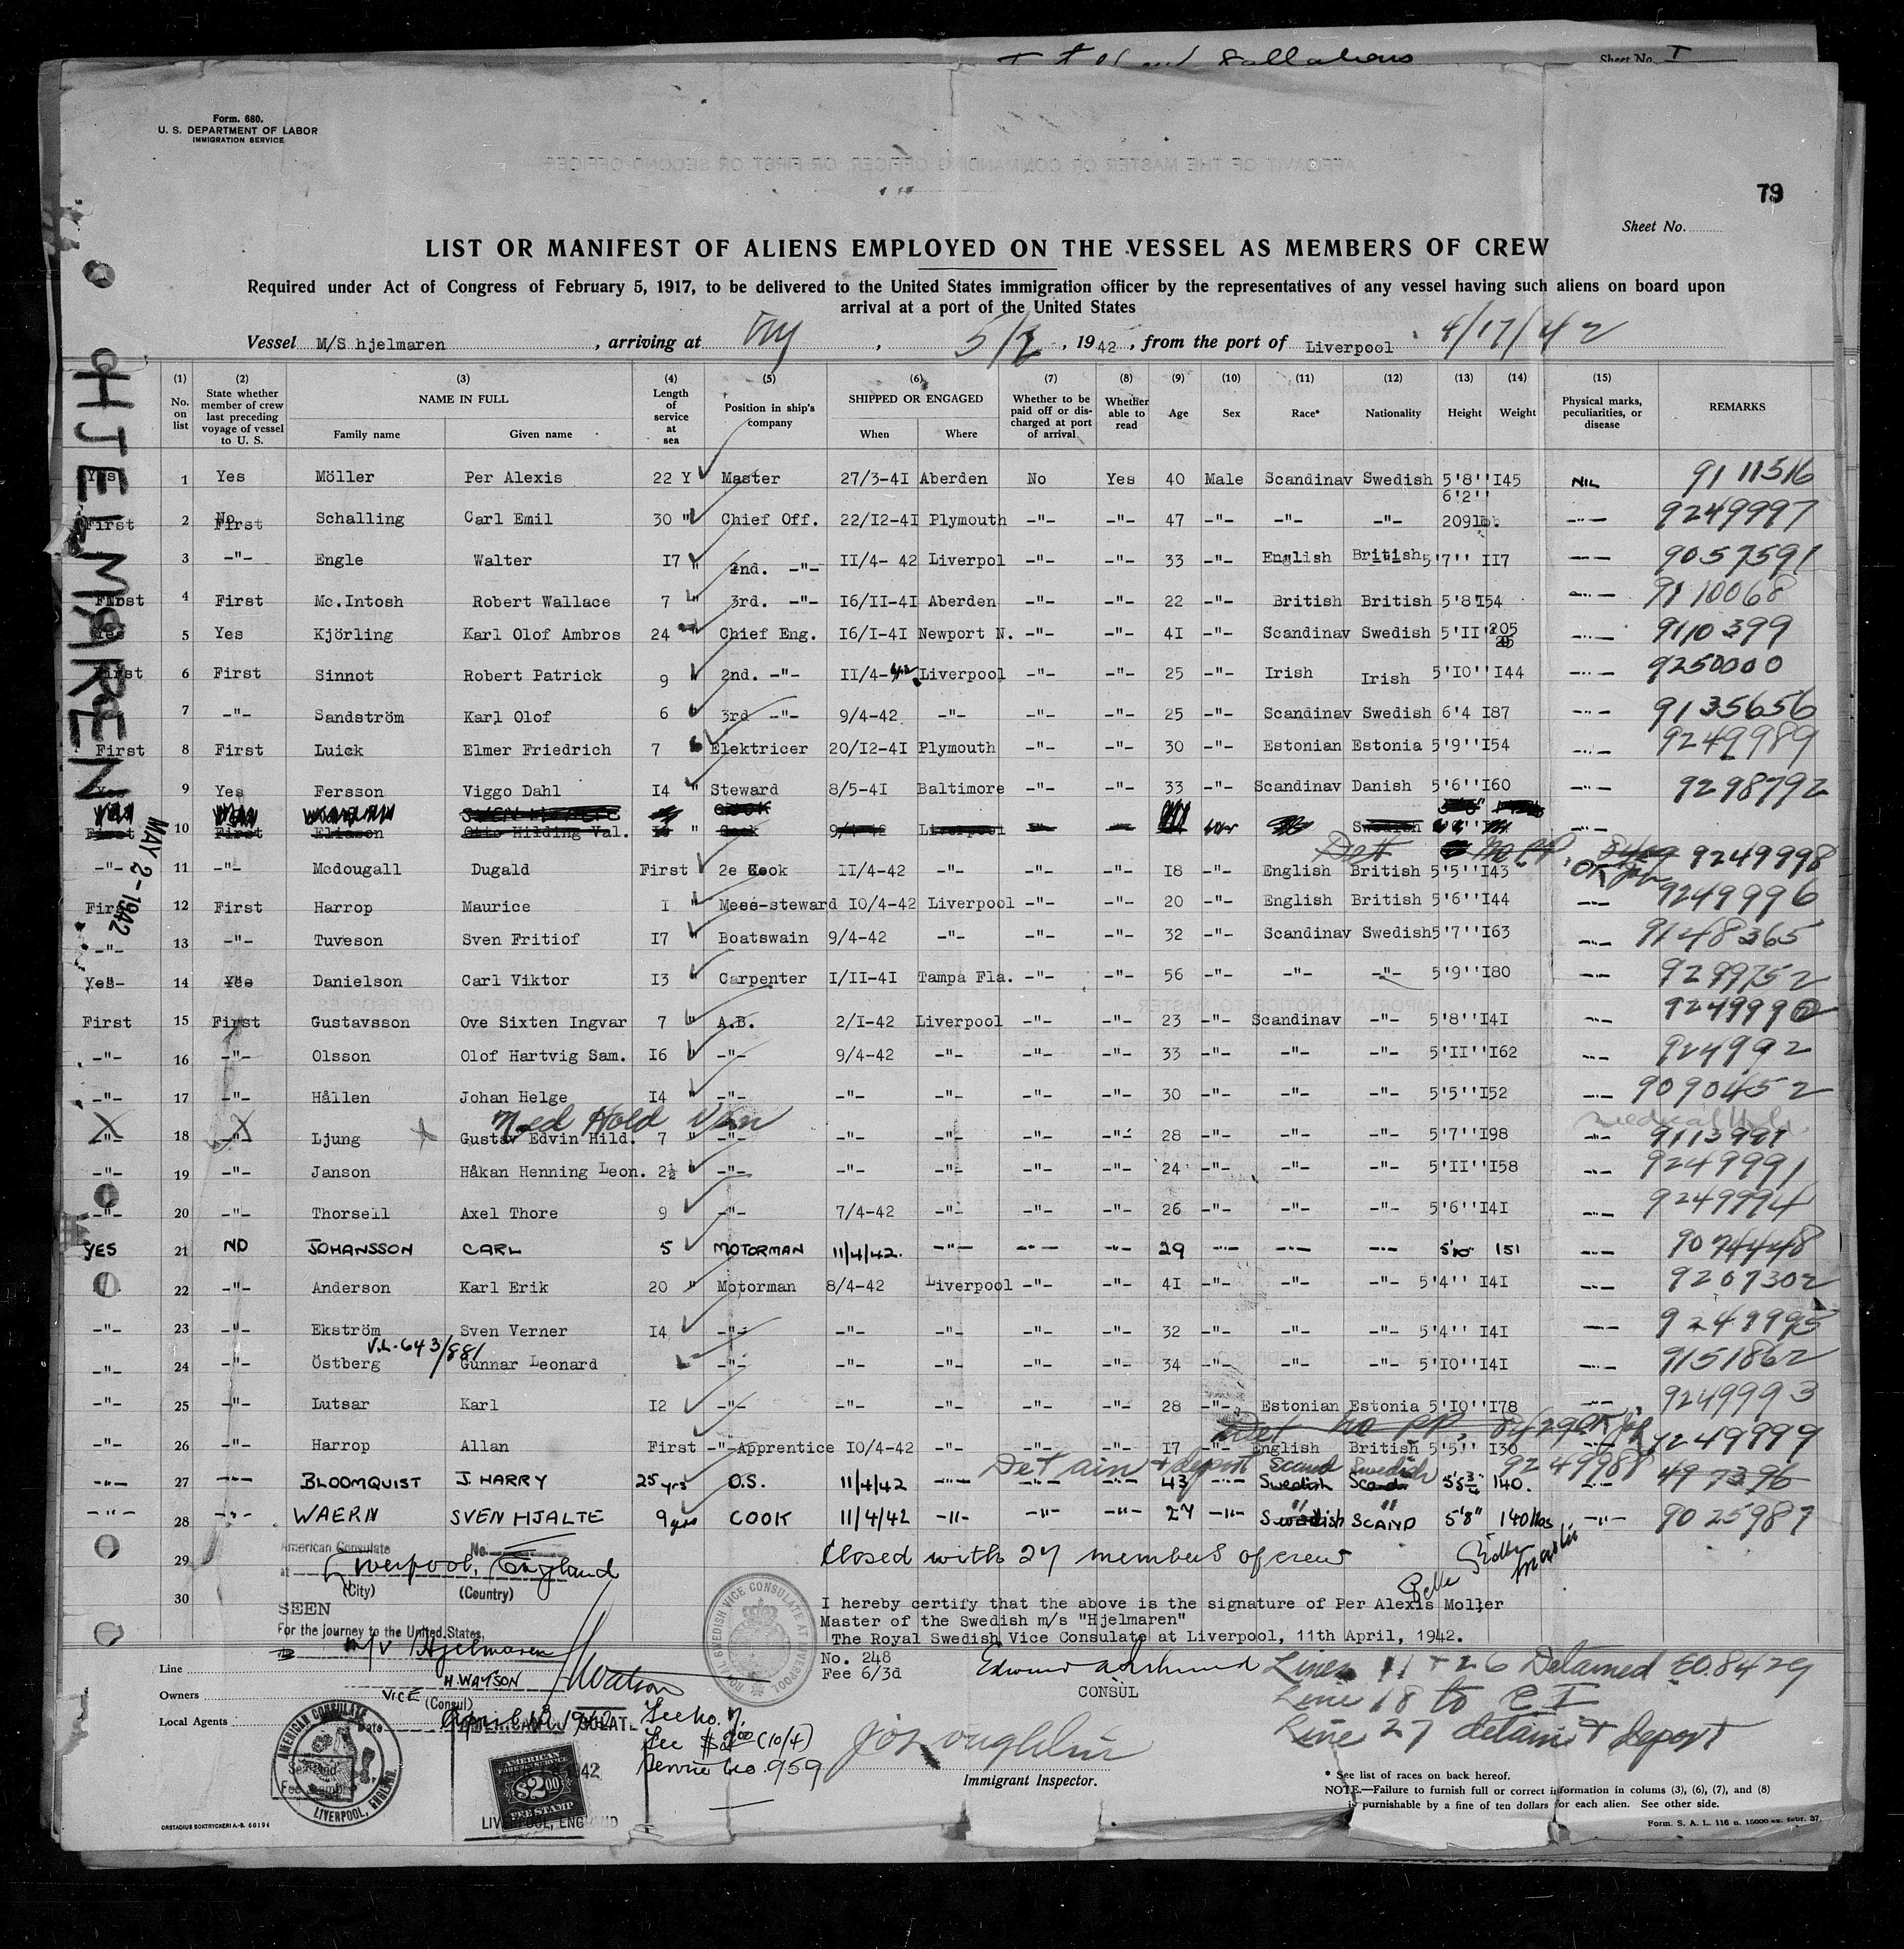 Sheet No. I
Form. 680.
U. S. DEPARTMENT OF LABOR
IMMIGRATION SERVICE
79
Sheet No.
LIST OR MANIFEST OF ALIENS EMPLOYED ON THE VESSEL AS MEMBERS OF CREW
Required under Act of Congress of February 5, 1917, to be delivered to the United States immigration officer by the representatives of any vessel having such aliens on board upon
arrival at a port of the United States
Vessel M/S hjelmaren, arriving at NY, 5/2, 1942, from the port of Liverpool 4/17/42
HJELMAREN
MAY 2-1942
(1) (2) (3) (4) (5) (6) (7) (8) (9) (10) (11) (12) (13) (14) (15)
No. on list State whether member of crew last preceding voyage of vessel to U. S. NAME IN FULL Family name Given name Length of service at sea Position in ship's company SHIPPED OR ENGAGED When Where Whether to be paid off or discharged at port of arrival Whether able to read Age Sex Race* Nationality Height Weight Physical marks, peculiarities, or disease REMARKS
Yes 1 Yes Möller Per Alexis 22 Y Master 27/3-4I Aberden No Yes 40 Male Scandinav Swedish 5'8'' I45 NIL 9111516
First 2 No First Schalling Carl Emil 30 " Chief Off. 22/I2-4I Plymouth -"- -"- 47 -"- -"- -"- 6'2'' 209lb. -"- 9249997
3 -"- Engle Walter I7 " 2nd. -"- II/4- 42 Liverpol -"- -"- 33 -"- English British 5'7'' II7 -"- 9057591
First 4 First Mc.Intosh Robert Wallace 7 " 3rd. -"- I6/II-4I Aberden -"- -"- 22 -"- British British 5'8'I54 -"- 9110068
Yes 5 Yes Kjörling Karl Olof Ambros 24 Chief Eng. I6/I-4I Newport N. -"- -"- 4I -"- Scandinav Swedish 5'II'' 205 -"- 9110399
First 6 First Sinnot Robert Patrick 9 2nd. -"- II/4-42 Liverpool -"- -"- 25 -"- Irish Irish 5'IO'' I44 -"- 9250000
7 -"- Sandström Karl Olof 6 " 3rd -"- 9/4-42 -"- -"- -"- 25 -"- Scandinav Swedish 6'4 I87 -"- 9135656
First 8 First Luick Elmer Friedrich 7 Elektricer 20/I2-4I Plymouth -"- -"- 30 -"- Estonian Estonia 5'9''I54 -"- 9249989
Yes 9 Yes Fersson Viggo Dahl I4 " Steward 8/5-4I Baltimore -"- -"- 33 -"- Scandinav Danish 5'6''I60 -"- 9298792
First 10 First Eliason Hilding Val. " Cook 9/4-42 Liverpool Swedish
-"- 11 -"- Mcdougall Dugald First 2e Cook II/4-42 -"- -"- -"- I8 -"- English British 5'5''I43 OK 9249998
First 12 First Harrop Maurice I " Mess-steward IO/4-42 Liverpool -"- -"- 20 -"- English British 5'6''I44 -"- 9249996
-"- 13 -"- Tuveson Sven Fritiof I7 " Boatswain 9/4-42 -"- -"- -"- 32 -"- Scandinav Swedish 5'7''I63 -"- 9148365
Yes 14 Yes Danielson Carl Viktor I3 " Carpenter I/II-4I Tampa Fla. -"- -"- 56 -"- -"- -"- 5'9''I80 -"- 9299752
First 15 First Gustavsson Ove Sixten Ingvar 7 " A.B. 2/I-42 Liverpool -"- -"- 23 -"- Scandinav -"- 5'8''I4I -"- 9249990
-"- 16 -"- Olsson Olof Hartvig Sam. I6 -"- 9/4-42 -"- -"- -"- 33 -"- -"- -"- 5'II''I62 -"- 924992
-"- 17 -"- Hållen Johan Helge I4 -"- -"- -"- -"- -"- 30 -"- -"- -"- 5'5''I52 -"- 9090452
Med Hold
X -"- 18 X -"- Ljung Gustav Edvin Hild. 7 " -"- -"- -"- -"- -"- 28 -"- -"- -"- 5'7''I98 -"-
-"- 19 -"- Janson Håkan Henning Leon. 2½ " -"- -"- -"- -"- -"- 24 -"- -"- -"- 5'II''I58 -"- 9249991
-"- 20 -"- Thorsell Axel Thore 9 -"- 7/4-42 -"- -"- -"- 26 -"- -"- -"- 5'6''I4I -"- 9249994
YES 21 NO JOHANSSON CARL 5 MOTORMAN 11/4/42. -"- -"- -"- 29 -"- -"- -"- 5'10" 151 -"- 9074448
22 -"- Anderson Karl Erik 20 " Motorman 8/4-42 Liverpool -"- -"- 4I -"- -"- -"- 5'4'' I4I -"- 9207302
-"- 23 -"- Ekström Sven Verner I4 -"- -"- -"- -"- -"- 32 -"- -"- -"- 5'4'' I4I -"- 9249995
V.L-643/881
-"- 24 -"- Östberg Gunnar Leonard -"- -"- -"- -"- -"- 34 -"- -"- -"- 5'IO''I4I -"- 9151862
-"- 25 -"- Lutsar Karl I2 -"- -"- -"- -"- -"- 28 -"- Estonian Estonia 5'IO''I78 -"- 9249993
Det no pp
-"- 26 -"- Harrop Allan First -"- Apprentice IO/4-42 -"- -"- -"- I7 -"- English British 5'5'' I30 -"- 9249999
Detain & deport Scand Swedish 9249988
-"- 27 -"- BLOOMQUIST J. HARRY 25 yrs O.S. 11/4/42 -"- -"- -"- 43 -"- Swedish Scand 5'5¾ 140. -"- 497396
-"- 28 -"- WAERN SVEN HJALTE 9 yrs COOK 11/4/42 -"- -"- -"- 27 -"- Swedish SCAND 5'8" 140 lbs -"- 9025987
29
30
American Consulate No.
at Liverpool, England
(City) (Country)
SEEN
For the journey to the United States,
m/v Hjelmaren
H. WATSON
VICE (Consul)
Date April 1942
Closed with 27 members of crew
I hereby certify that the above is the signature of Per Alexis Moller
Master of the Swedish m/s "Hjelmaren"
The Royal Swedish Vice Consulate at Liverpool, 11th April, 1942.
No. 248
Fee 6/3d
CONSUL
ROYAL SWEDISH VICE CONSULATE AT LIVERPOOL
Line
Owners
Local Agents
AMERICAN CONSULATE
LIVERPOOL, ENGLAND.
Fee No. 7.
Fee $2.00 (10/4)
Service No. 959
AMERICAN
FOREIGN SERVICE
$2.00
FEE STAMP
LIVERPOOL, ENGLAND
Immigrant Inspector.
Lines 11 + 26 Detained EO.8429
Line 18 to E I
Line 27 detain & deport
* See list of races on back hereof.
NOTE.—Failure to furnish full or correct information in colums (3), (6), (7), and (8)
is purnishable by a fine of ten dollars for each alien. See other side.
ORSTADIUS BOKTRYCKERI A.-B. 60194
Form. S. A. L. 116 n. 15000 ex. febr. 37.